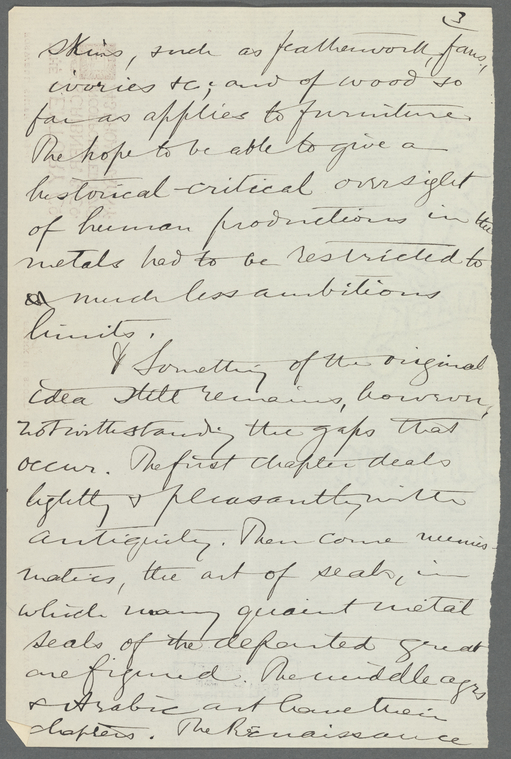 3
skins, such as featherwork, fans,
ivories &c; and of wood so
far as applies to furniture.
The hope to be able to give a
historical-critical oversight
of human productions in the
metals had to be restricted to
much less ambitious
limits.
Something of the original
idea still remains, however,
notwithstanding the gaps that
occur. The first chapter deals
lightly & pleasantly with
antiquity. Then come numis-
matics, the art of seals, in
which many quaint metal
seals of the departed great
are figured. The middle ages
& Arabic art have their
chapters. The Renaissance